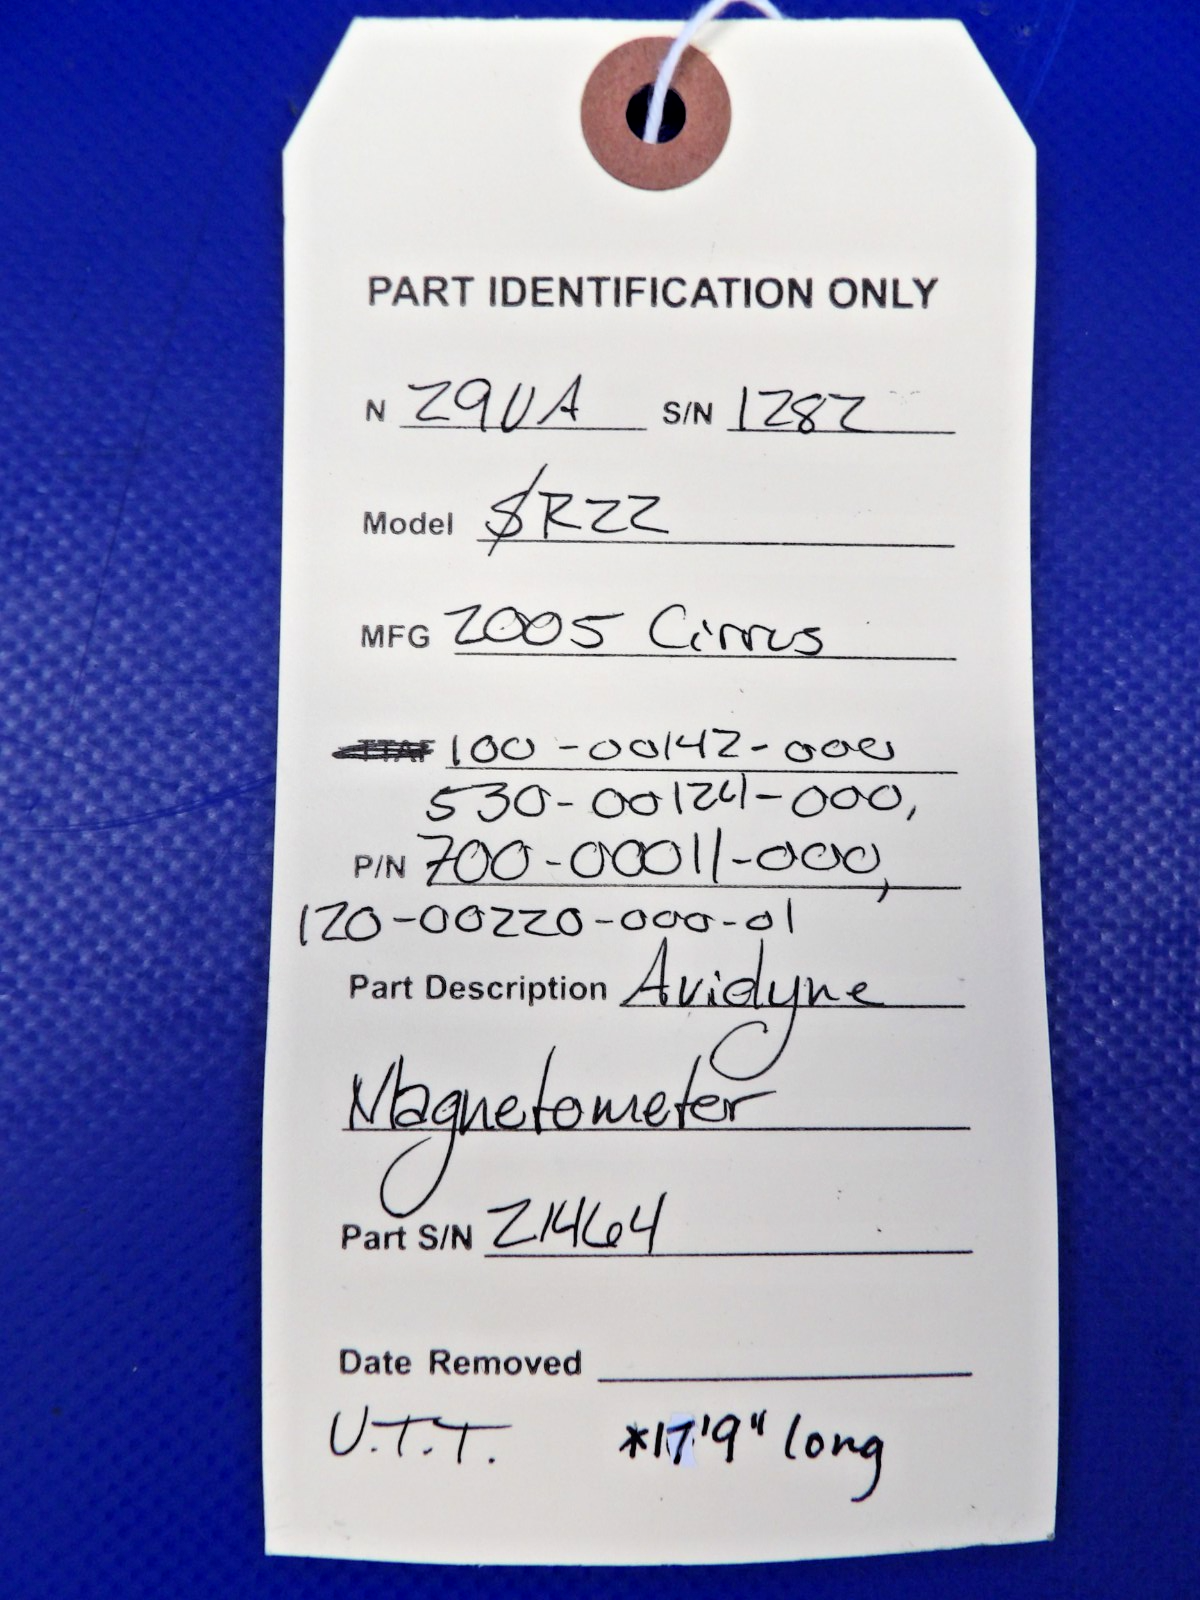 PART IDENTIFICATION ONLY
N 29UA S/N 1282
Model SR22
MFG 2005 Cirrus
TTAF 100-00142-000
530-00124-000,
P/N 700-00011-000,
120-00220-000-01
Part Description Avidyne
Magnetometer
Part S/N 21464
Date Removed
U.T.T. *17'9" long